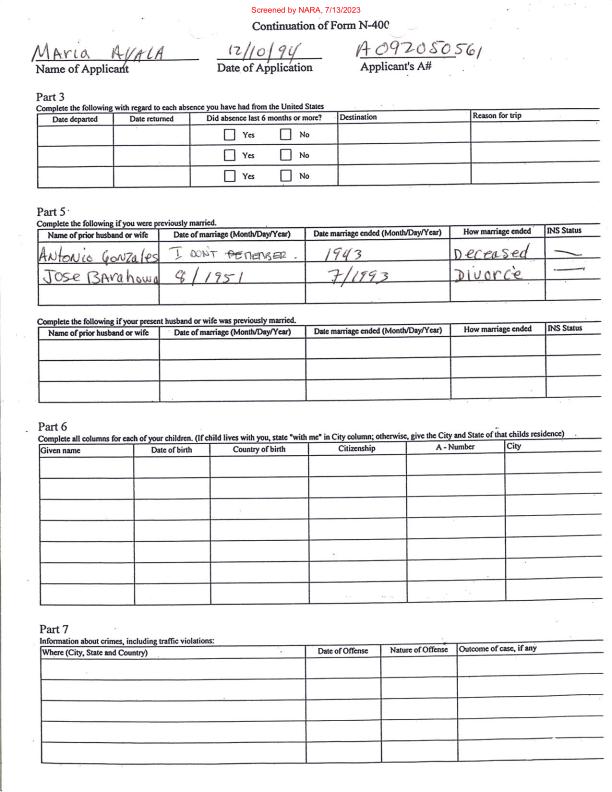 Screened by NARA, 7/13/2023
Continuation of Form N-400
Maria AYALA 12/10/94 A092050561
Name of Applicant Date of Application Applicant's A#
Part 3
Complete the following with regard to each absence you have had from the United States
Date departed Date returned Did absence last 6 months or more? Destination Reason for trip
Yes No
Yes No
Yes No
Part 5
Complete the following if you were previously married.
Name of prior husband or wife Date of marriage (Month/Day/Year) Date marriage ended (Month/Day/Year) How marriage ended INS Status
Antonio Gonzales I DON'T REMEMBER. 1943 Deceased —
Jose Barahona 8/1951 7/1993 Divorce —
Complete the following if your present husband or wife was previously married.
Name of prior husband or wife Date of marriage (Month/Day/Year) Date marriage ended (Month/Day/Year) How marriage ended INS Status
Part 6
Complete all columns for each of your children. (If child lives with you, state "with me" in City column; otherwise, give the City and State of that childs residence)
Given name Date of birth Country of birth Citizenship A - Number City
Part 7
Information about crimes, including traffic violations:
Where (City, State and Country) Date of Offense Nature of Offense Outcome of case, if any